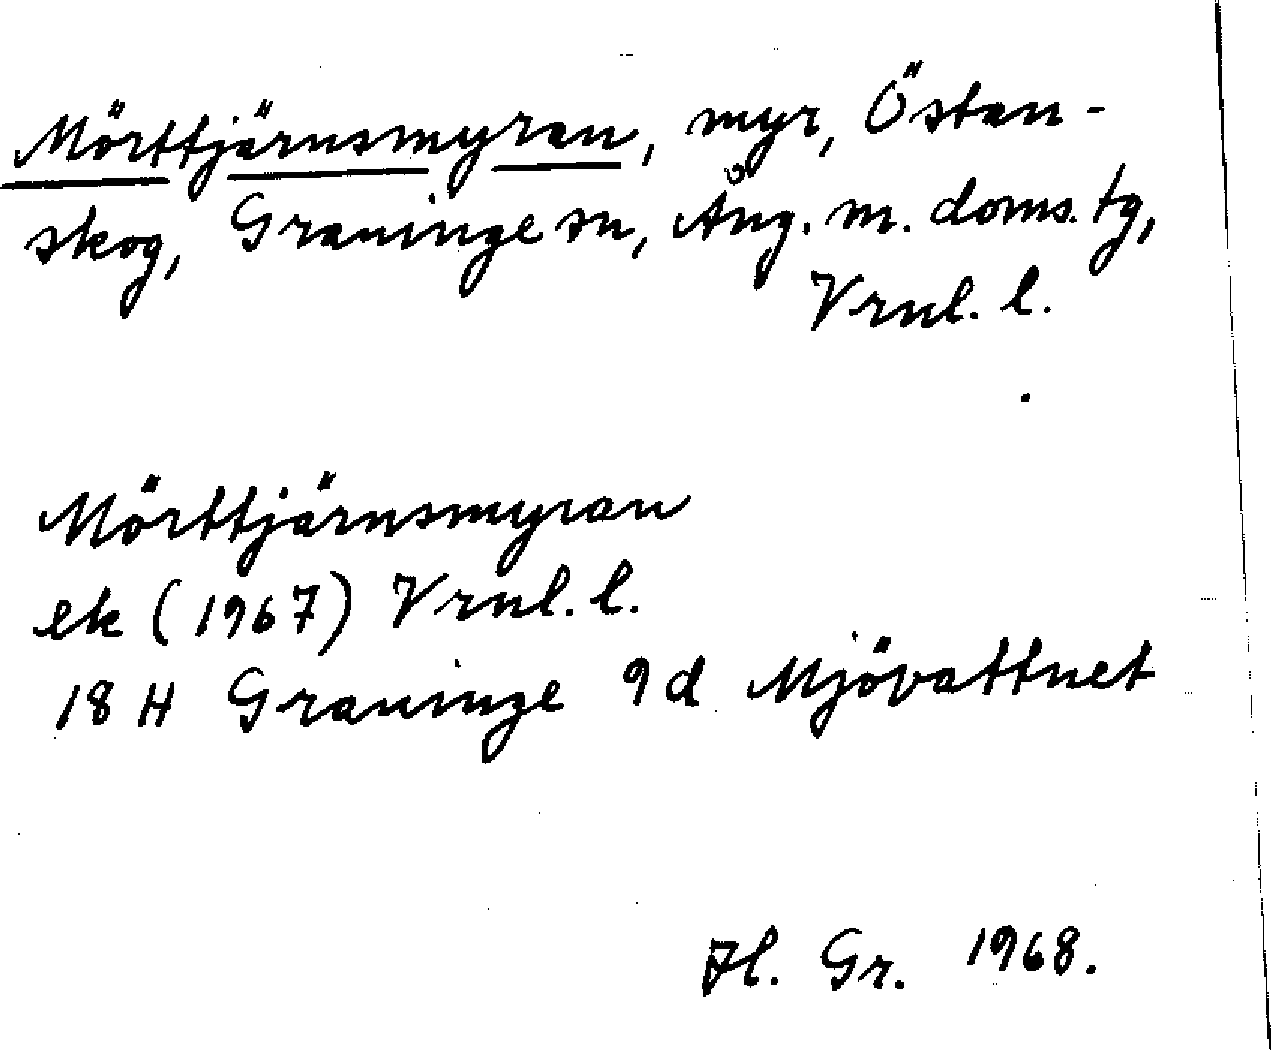 Mörttjärnsmyran, myr, Östan-
skog, Graninge sn, Ång. m. doms. tg,
Vrnl. l.
Mörttjärnsmyran
ek (1967) Vrnl. l.
18 H Graninge 9d Mjövattnet
Hl. Gr. 1968.